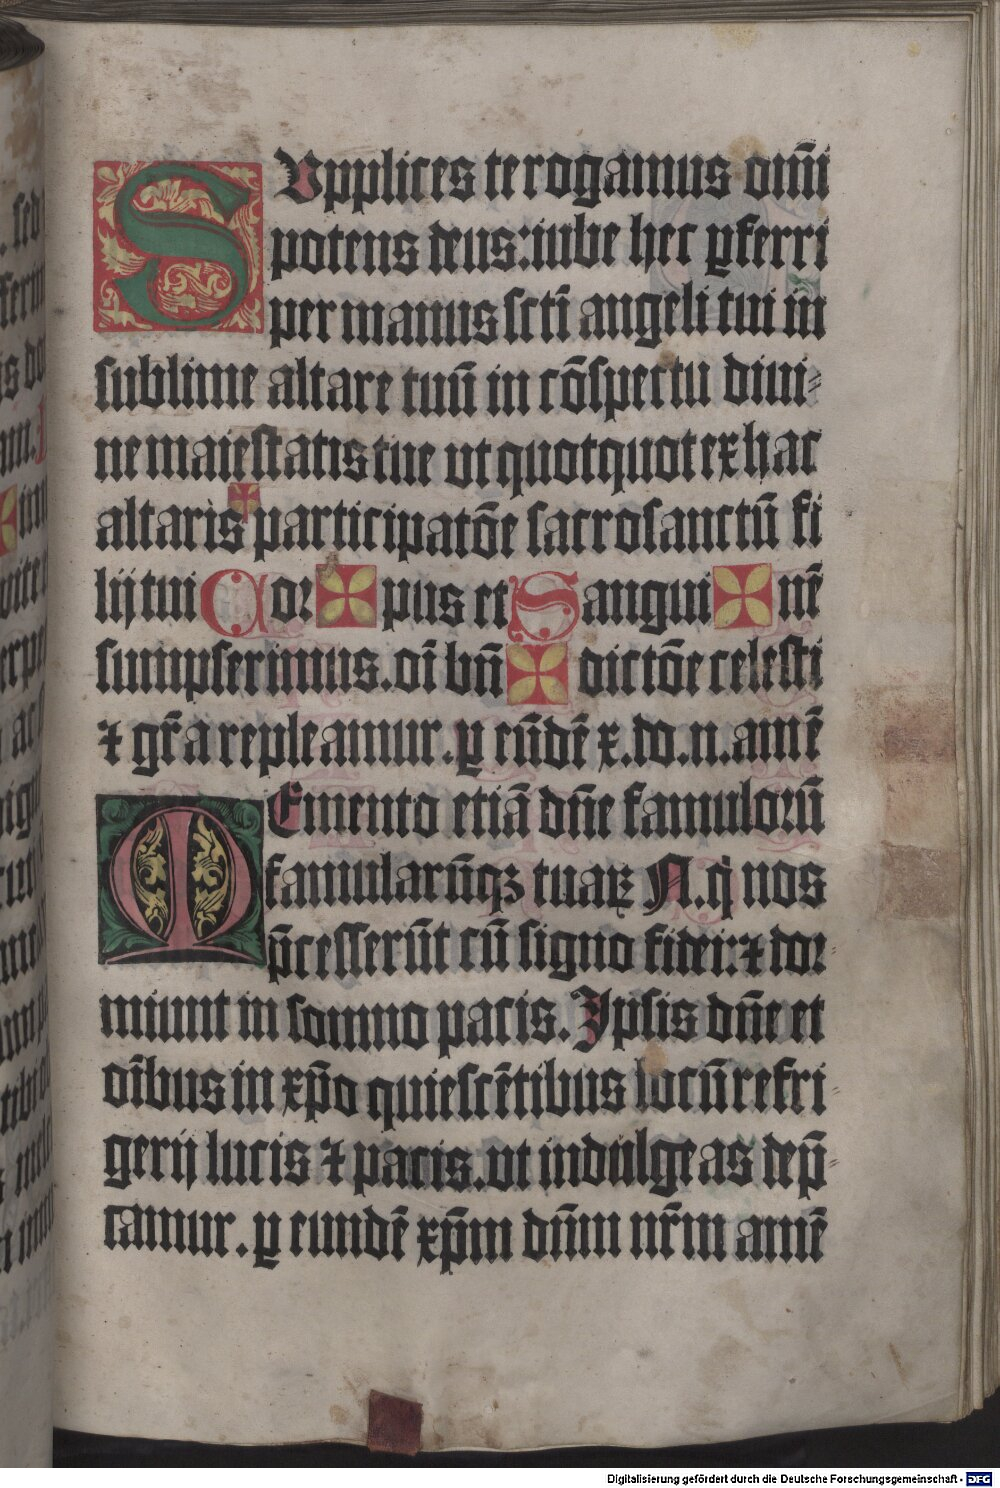 SVpplices te rogamus om̄i
potens deus: iube hec ꝑferri
per manus sc̄ti angeli tui in
sublime altare tuū in cōspectu diui⸗
ne maiestatis tue ut quotquot ex hac
altaris ✝ participatōe sacrosanctū fi
lij tui Cor ✠ pus et Sangui ✠ nē
sumpserimus. oī bn̄ ✠ dictōe celesti
⁊ gr̄a repleamur. ꝑ eūdē x. do. n. amē
MEmento etiā dn̄e famulorū
famularūqꝫ tuaꝝ N. q̄ nos
p̄cesserūt cū signo fidei: ⁊ dor⸗
miunt in somno pacis. Ipsis dn̄e et
oībus in xp̄o quiescētibus locū refri
gerij lucis ⁊ pacis. ut indulgeas dep̄⸗
camur. ꝑ eundē xp̄m dn̄m nr̄m amē
Digitalisierung gefördert durch die Deutsche Forschungsgemeinschaft - DFG